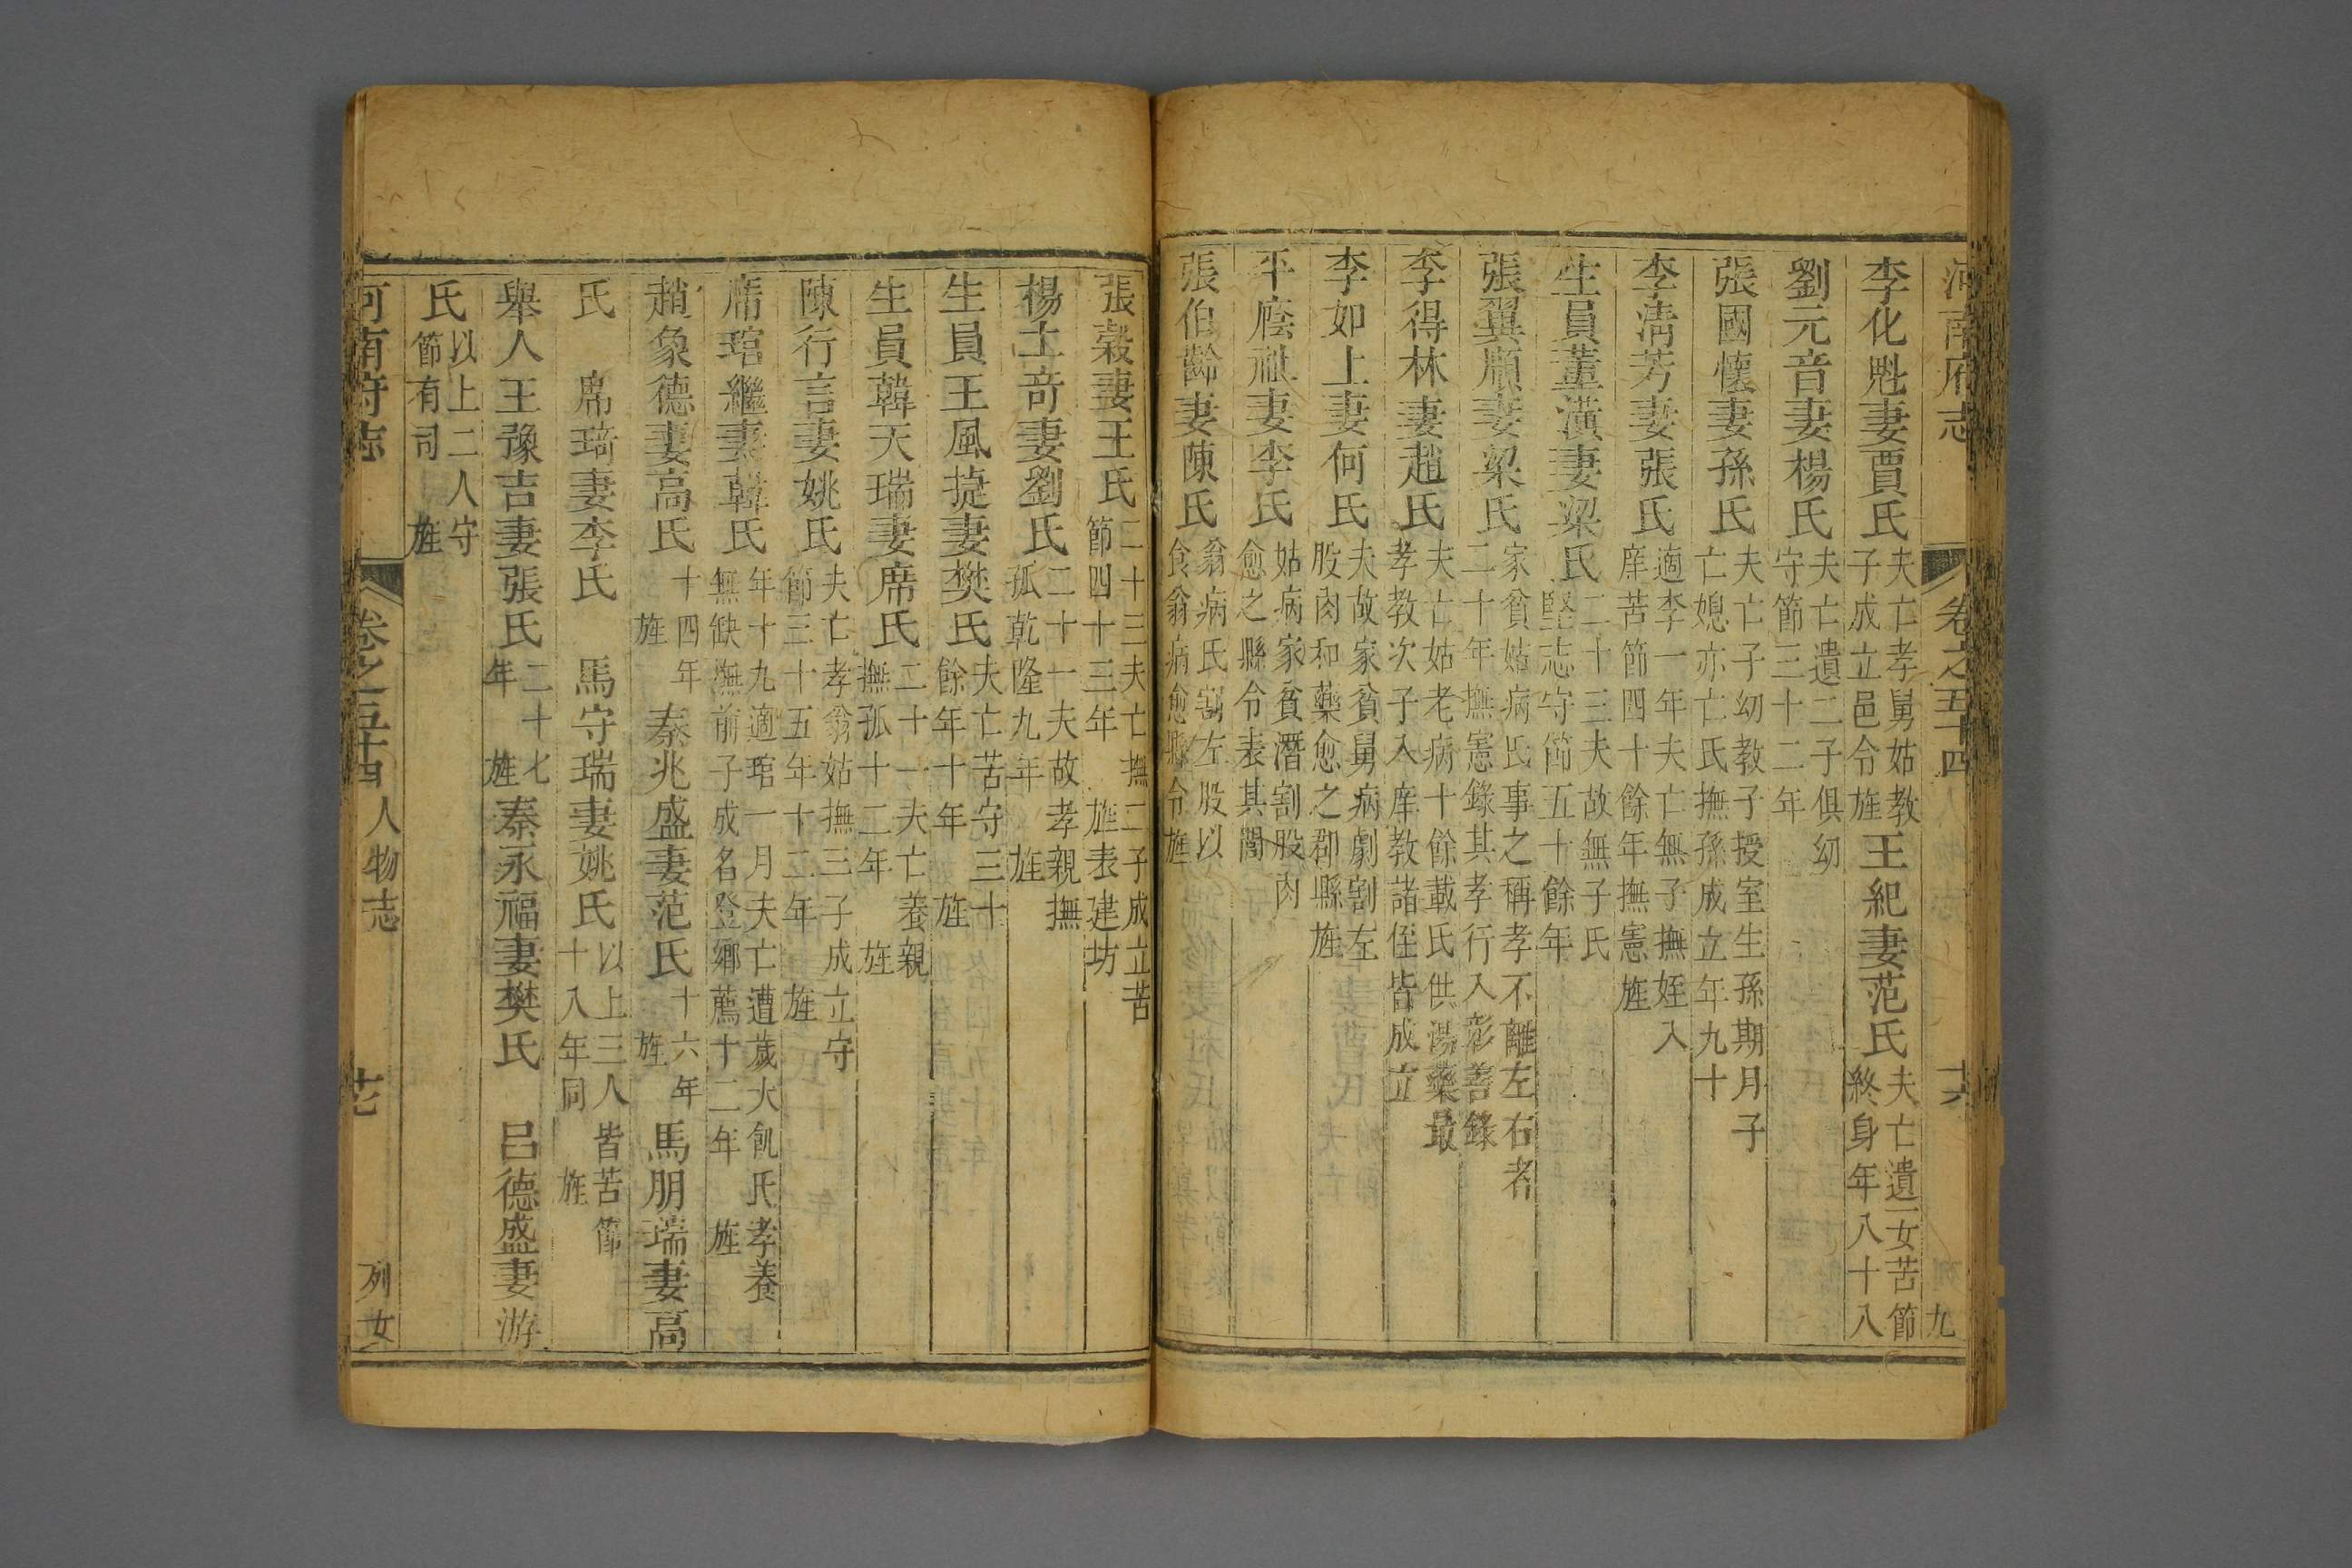 河南府志 卷之五十四 十六 九
李化魁妻賈氏 夫亡孝舅姑教子成立邑令旌 王紀妻范氏 夫亡遺一女苦節終身年八十八
劉元音妻楊氏 夫亡遺二子俱幼守節三十二年
張國懷妻孫氏 夫亡子幼教子授室生孫期月子亡媳亦亡氏撫孫成立年九十
李清芳妻張氏 適李一年夫亡無子撫姪入庠苦節四十餘年撫憲旌
生員董漢妻梁氏 二十三夫故無子氏堅志守節五十餘年
張翼順妻梁氏 家貧姑病氏事之稱孝不離左右者二十年撫憲錄其孝行入彰善錄
李得林妻趙氏 夫亡姑老病十餘載氏供湯藥最孝教次子入庠教諸侄皆成立
李如上妻何氏 夫故家貧舅病劇割左股肉和藥愈之郡縣旌
平廕祉妻李氏 姑病家貧潛割股肉愈之縣令表其閭
張伯齡妻陳氏 翁病氏割左股以食翁病愈縣令旌
張穀妻王氏 二十三夫亡撫二子成立苦節四十三年 旌表建坊
楊士奇妻劉氏 二十一夫故孝親撫孤乾隆九年 旌
生員王風捷妻樊氏 夫亡苦守三十餘年十年 旌
生員韓天瑞妻席氏 二十一夫亡養親撫孤十二年 旌
陳行言妻姚氏 夫亡孝翁姑撫三子成立守節三十五年十二年 旌
席琯繼妻韓氏 年十九適琯一月夫亡遭歲大飢氏孝養無缺撫前子成名登鄉薦十二年 旌
趙象德妻高氏 十四年旌 秦兆盛妻范氏 十六年旌 馬朋瑞妻高
氏 席琦妻李氏 馬守瑞妻姚氏 以上三人皆苦節十八年同 旌
舉人王豫吉妻張氏 二十七年 旌 秦永福妻樊氏 呂德盛妻游
氏 以上二人守節有司 旌
河南府志 卷之五十四 人物志 十七 列女